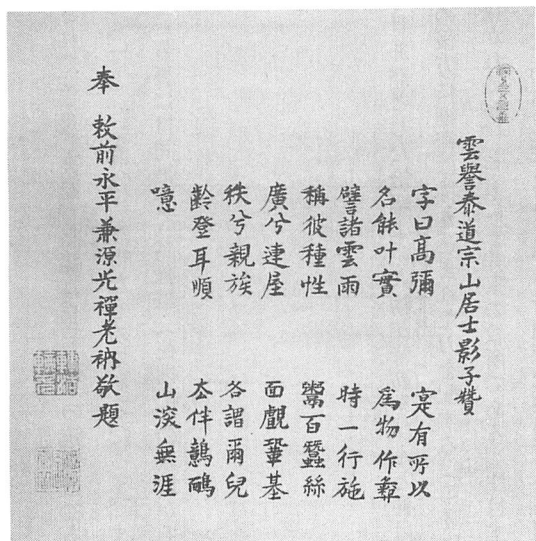 雲譽泰道宗山居士影子贊
字曰高彌 寔有所以
名能叶實 為物作彜
譬諸雲雨 時一行施
稱彼種性 鬻百蠶絲
廣兮連屋 面覷鞏基
秩兮親族 各謂爾兒
齡登耳順 厺伴
噫 山淡無涯
奉 敕前永平兼源光禪老衲敬題